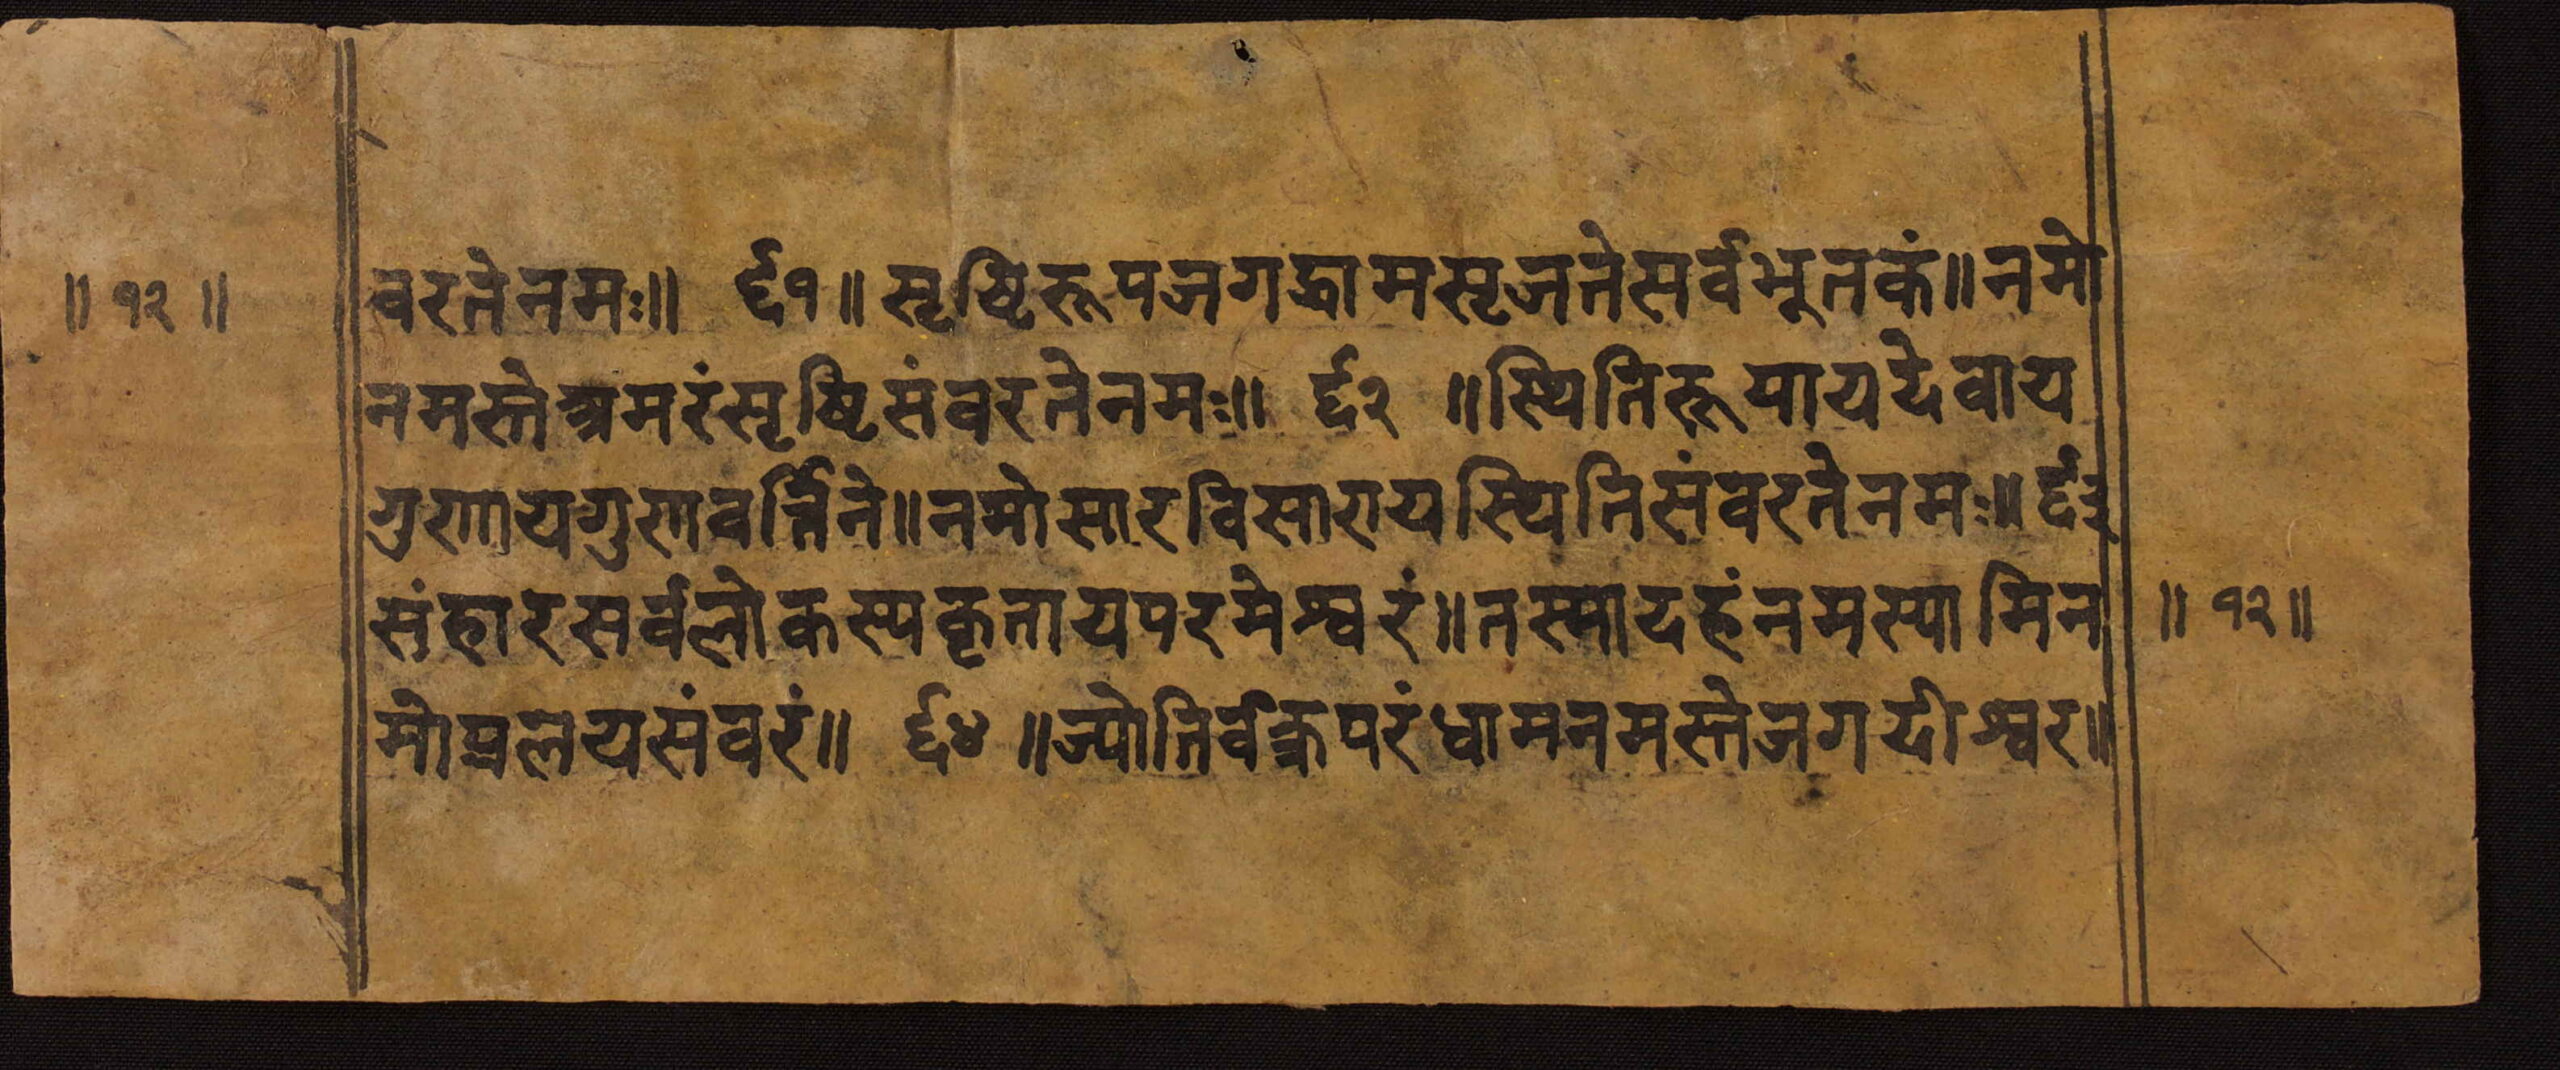 ॥ १२ ॥ वरतेनमः॥ ६१॥ सृष्टिरूपजगद्धामसृजतेसर्वभूतकं॥ नमो
नमस्तेश्रमरंसृष्टिसंवरतेनमः॥ ६२ ॥ स्थितिरूपायदेवाय
गुणायगुणवर्त्तिने॥ नमोसारविसारायस्थितिसंवरतेनमः॥ ६३
संहारसर्वलोकस्यकृतायपरमेश्वरं॥ तस्मादहंनमस्यामिन ॥ १२॥
मोप्रलयसंवरं॥ ६४ ॥ ज्योतिर्वह्मपरंधामनमस्तेजगदीश्वर॥